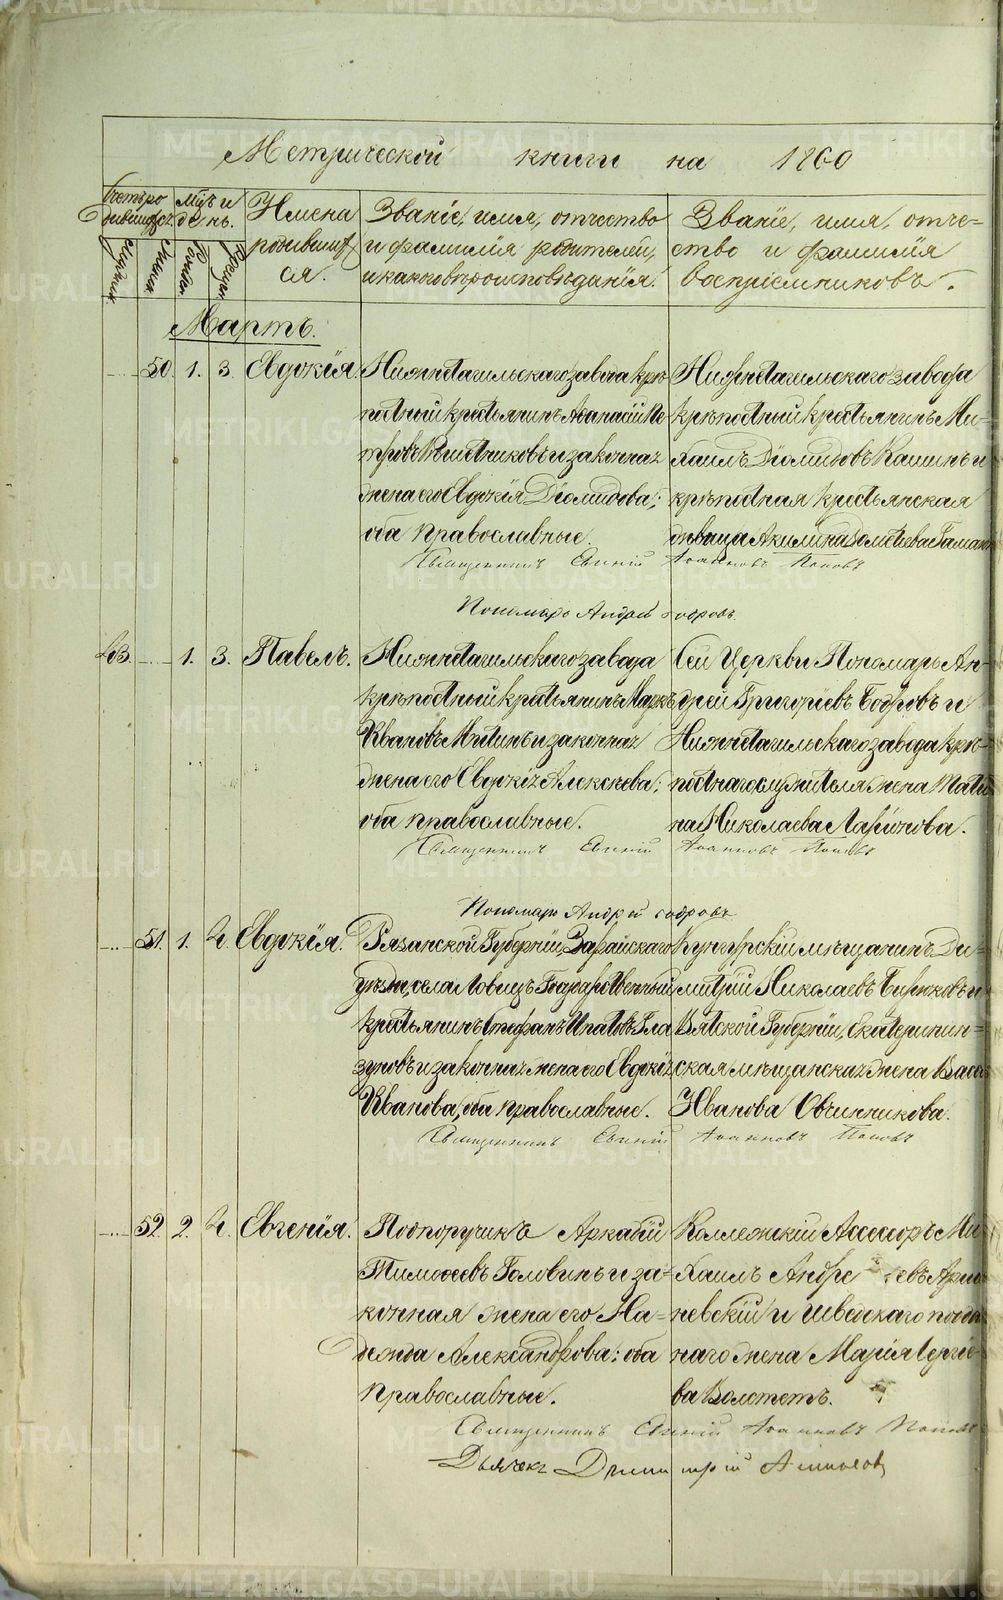 METRIKI.GASO-URAL.RU
Метрической книги на 1860
Счетъ ро
дившихся.
Мужеск.
Женск.
Мѣс. и
день.
Рожден.
Крещен.
Имена
родивших
ся.
Званіе, имя, отчество
и фамилія родителей,
и какого вѣроисповѣданія.
Званіе, имя, отче-
ство и фамилія
воспріемниковъ.
Мартъ.
50. 1. 3. Евдокія.
Нижнетагильскаго завода крѣ-
постный крестьянинъ Аѳанасій Пе
тровъ и законная
жена его Евдокія Діомидова;
оба православные.
Нижнетагильскаго завода
крѣпостный крестьянинъ Ми-
хаилъ Діомидовъ Кашинъ и
крѣпостная крестьянская
дѣвица Акилина
Священникъ Евгеній Іоанновъ Поповъ
Пономарь Андрей Бобровъ
63. 1. 3. Павелъ.
Нижнетагильскаго завода
крѣпостный крестьянинъ Маркъ
Ивановъ Митинъ и законная
жена его Евдокія Алексѣева;
оба православные.
Сей Церкви Пономарь Ан-
дрей Григорьевъ Бобровъ и
Нижнетагильскаго завода крѣ-
постнаго служителя жена Татія
на Николаева Ларіонова.
Священникъ Евгеній Іоанновъ Поповъ
Пономарь Андрей Бобровъ
51. 1. 4. Евдокія.
Рязанской Губерніи, Зарайскаго
уѣзда, села Ловецъ Государственный
крестьянинъ Стефанъ Ипатовъ Гла
зуновъ и законная жена его Евдокія
Иванова, оба православные.
Кунгурскій мѣщанинъ Ди-
митрій Николаевъ Бирюковъ и
Вятской Губерніи,
мѣщанская жена Васса
Иванова Овчинникова.
Священникъ Евгеній Іоанновъ Поповъ
52. 2. 4. Евгенія.
Подпоручикъ Аркадій
Тимоѳеевъ Головинъ и за-
конная жена его На-
дежда Александрова; оба
православные.
Коллежскій Ассесоръ Ми
хаилъ Андреевъ
и Шведскаго поддан
наго жена Марія Сергѣе-
ва
Священникъ Евгеній Іоанновъ Поповъ
Дьячекъ Димитрій